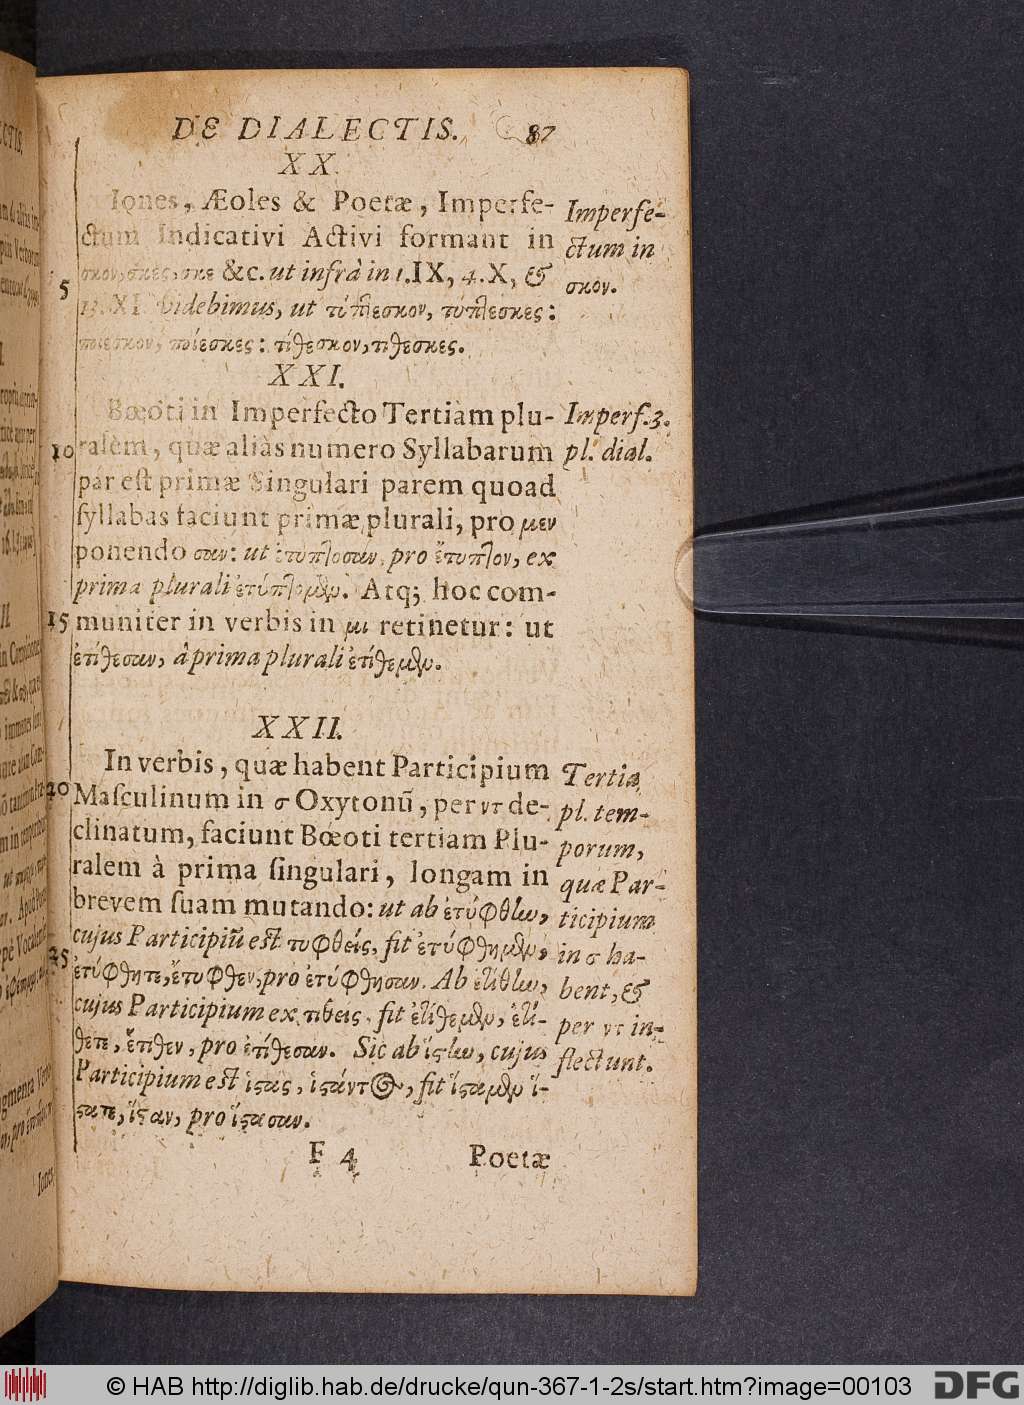 DE DIALECTIS. 87
XX.
Iones, Æoles & Poetæ, Imperfe-
ctum Indicativi Activi formant in
σκον, σκες, σκε &c. ut infrà in 1. IX, 4. X, &
13. XI videbimus, ut τύπτεσκον, τύπτεσκες:
ποιέσκον, ποίεσκες: τίθεσκον, τιθεσκες.
Imperfe-
ctum in
σκον.
5
XXI.
Bœoti in Imperfecto Tertiàm plu-
ralem, quæ aliàs numero Syllabarum
par est primæ Singulari parem quoad
syllabas faciunt primæ plurali, pro μεν
ponendo σαν: ut ἐτύπτοσαν, pro ἔτυπτον, ex
prima plurali ἐτύπτομεν. Atq; hoc com-
muniter in verbis in μι retinetur: ut
ἐτίθεσαν, à prima plurali ἐτίθεμεν.
Imperf. 3.
pl. dial.
10
15
XXII.
In verbis, quæ habent Participium
Masculinum in σ Oxytonũ, per ντ de-
clinatum, faciunt Bœoti tertiam Plu-
ralem à prima singulari, longam in
brevem suam mutando: ut ab ἐτύφθων,
cujus Participiũ est τυφθείς, fit ἐτύφθημεν,
ἐτύφθητε, ἔτυφθεν, pro ἐτύφθησαν. Ab ἐτίθην,
cujus Participium ex τιθείς, fit ἐτίθεμεν, ἐτί-
θετε, ἔτιθεν, pro ἐτίθεσαν. Sic ab ἵστην, cujus
Participium est ἱστας, ἱστάντος, fit ἵσταμεν ἵ-
στατε, ἵσταν, pro ἵστασαν.
Tertia
pl. tem-
porum,
quæ Par-
ticipium
in σ ha-
bent, &
per ντ in-
flectunt.
20
25
F 4 Poetæ
© HAB http://diglib.hab.de/drucke/qun-367-1-2s/start.htm?image=00103
DFG